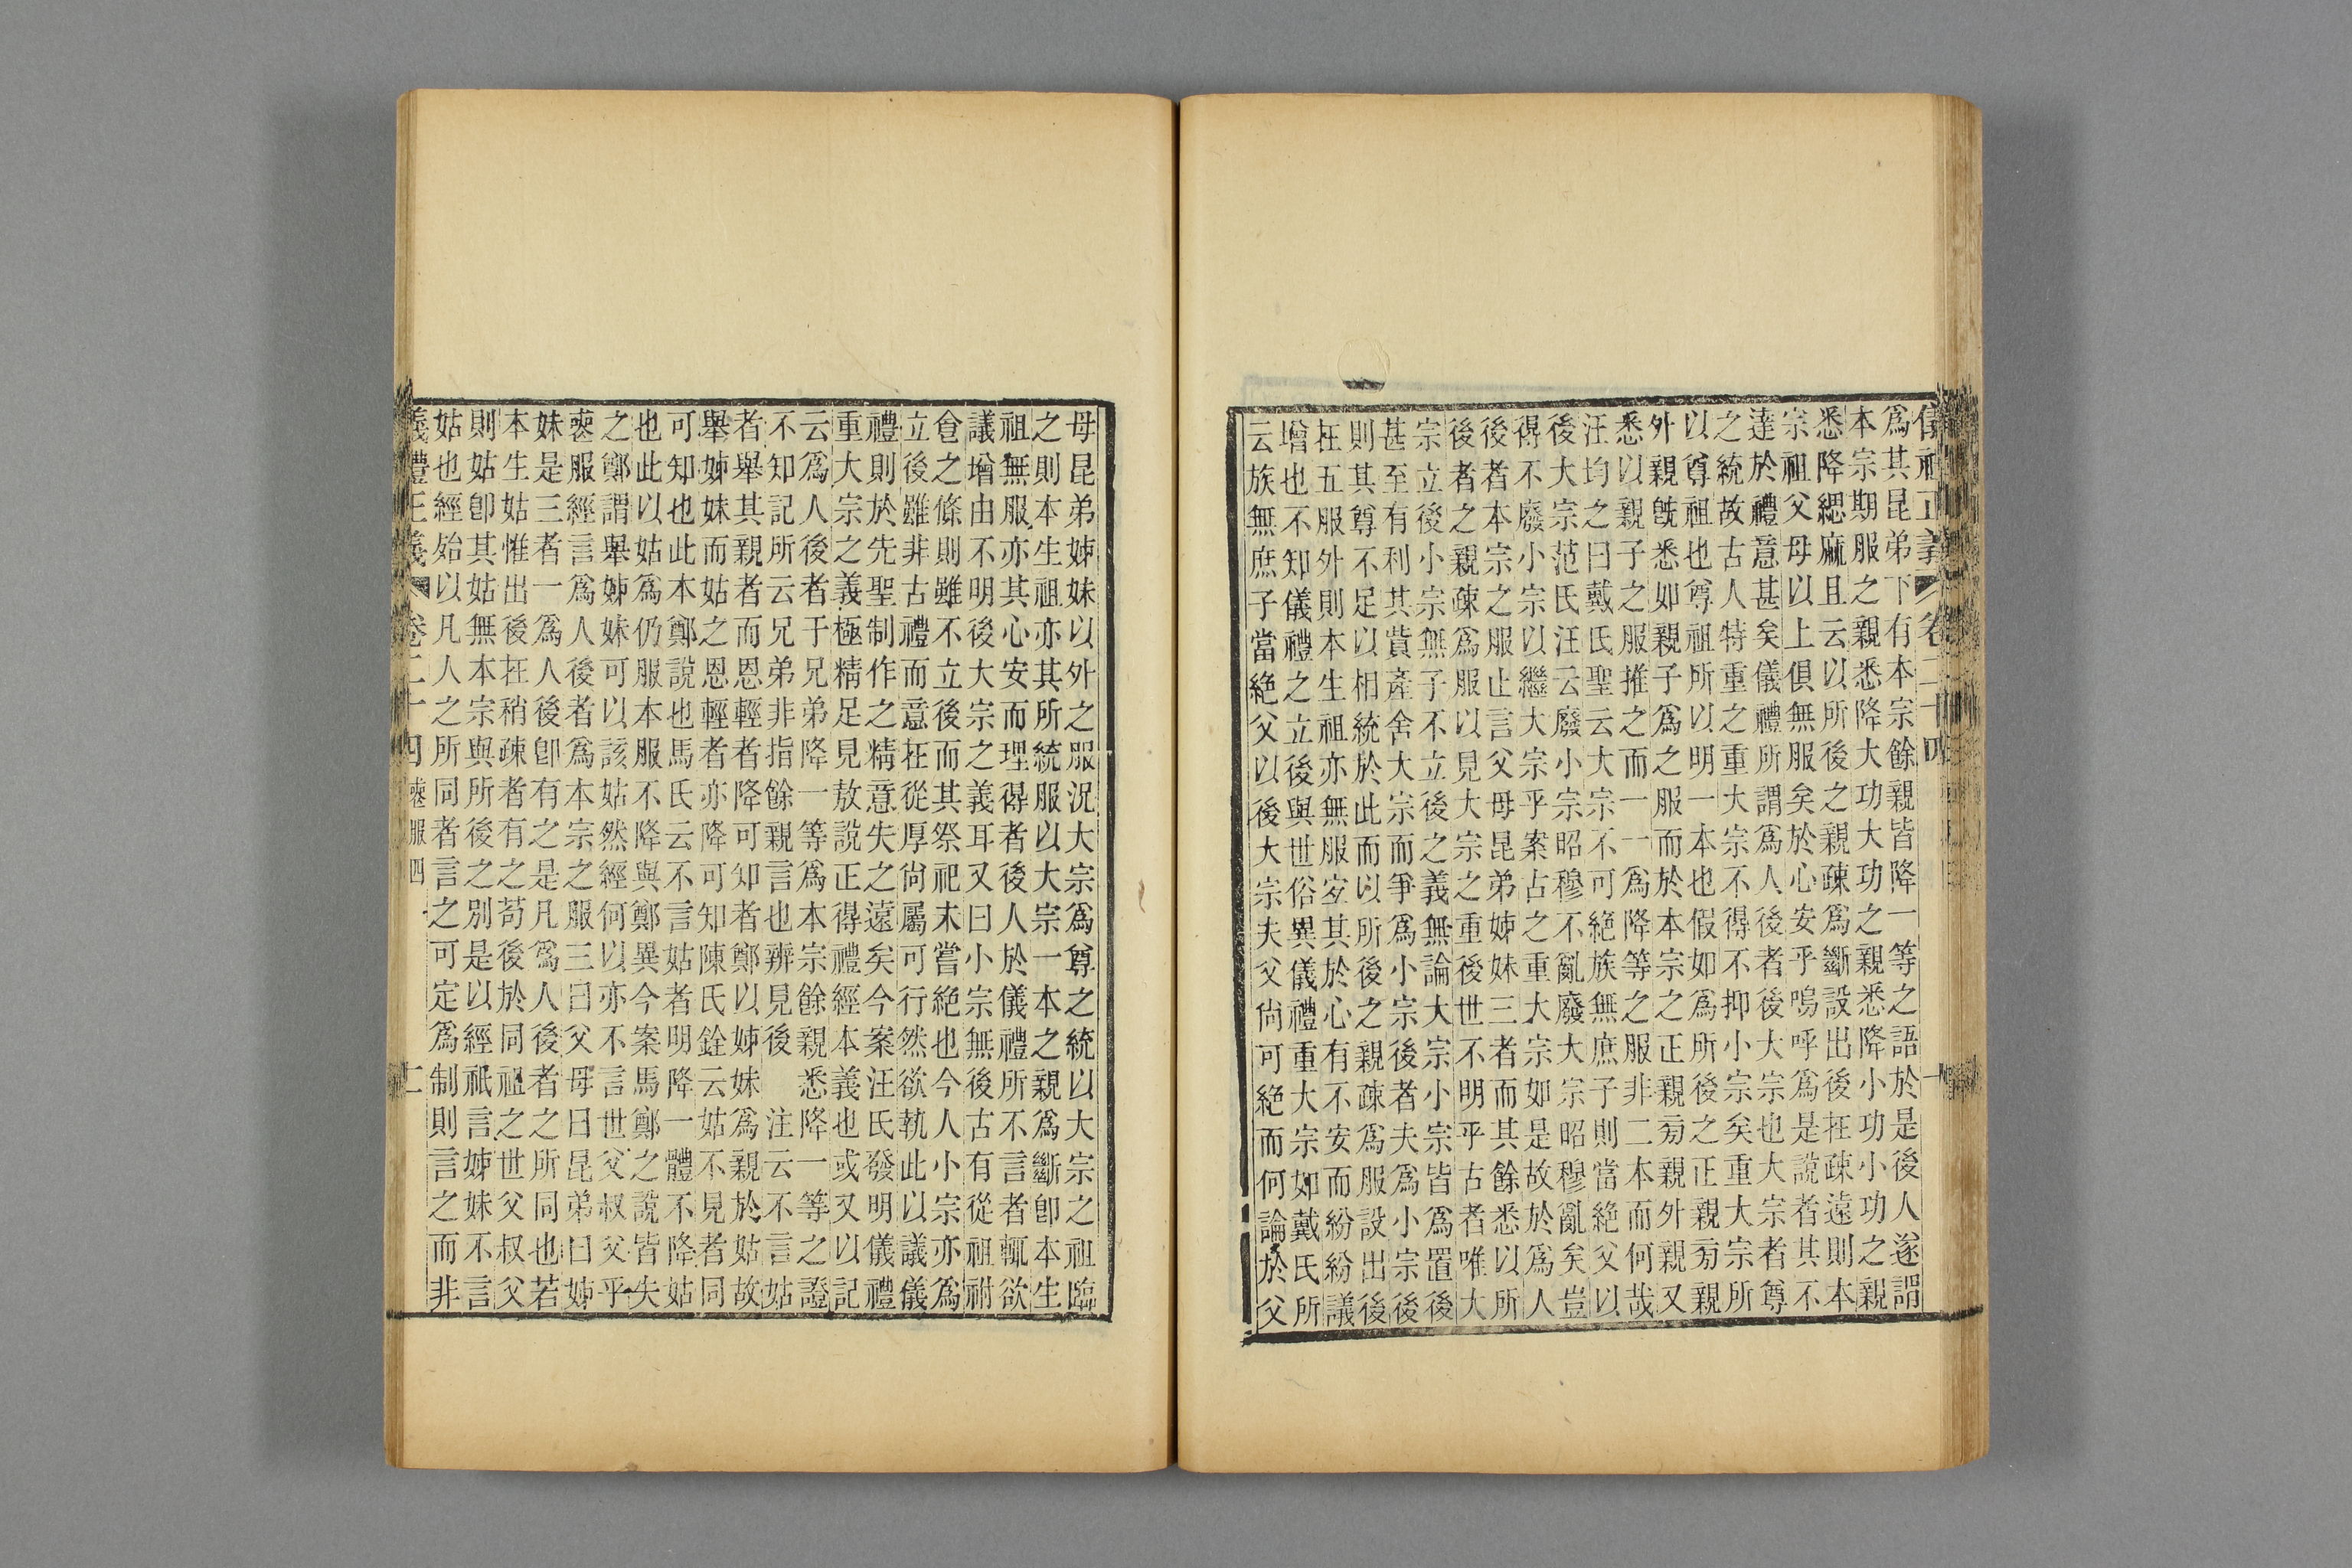 儀禮正義 卷二十四 一
爲其昆弟下有本宗餘親皆降一等之語於是後人遂謂
本宗期服之親悉降大功大功之親悉降小功小功之親
悉降緦麻且云以所後之親疎爲斷設出後在疎遠則本
宗祖父母以上俱無服矣於心安乎嗚呼爲是說者其不
達於禮意甚矣儀禮所謂爲人後者後大宗也大宗者尊
之統故古人特重之重大宗不得不抑小宗矣重大宗所
以尊祖也尊祖所以明一本也假如爲所後之正親旁親
外親旣悉如親子爲之服而於本宗之正親旁親外親又
悉以親子之服推之而一一爲降等之服非二本而何哉
汪均之曰戴氏聖云大宗不可絕族無庶子則當絕父以
後大宗范氏汪云廢小宗昭穆不亂廢大宗昭穆亂矣豈
得不廢小宗以繼大宗乎案古之重大宗如是故於爲人
後者本宗之服止言父母昆弟姊妹三者而其餘悉以所
後者之親疎爲服以見大宗之重後世不明乎古者唯大
宗立後小宗無子不立後之義無論大宗小宗皆爲置後
甚至有利其貲產舍大宗而爭爲小宗後者夫爲小宗後
則其尊不足以相統於此而以所後之親疎爲服設出後
在五服外則本生祖亦無服宐其於心有不安而紛紛議
增也不知儀禮之立後與世俗異儀禮重大宗如戴氏所
云族無庶子當絕父以後大宗夫父尚可絕而何論於父
母昆弟姊妹以外之服況大宗爲尊之統以大宗之祖臨
之則本生祖亦其所統服以大宗一本之親爲斷卽本生
祖無服亦其心安而理得者後人於儀禮所不言者輒欲
議增由不明後大宗之義耳又曰小宗無後古有從祖祔
食之條則雖不立後而其祭祀未嘗絕也今人小宗亦爲
立後雖非古禮而意在從厚尚屬可行然欲執此以議儀
禮則於先聖制作之精意失之遠矣今案汪氏發明儀禮
重大宗之義極精足見敖說正得禮經本義也或又以記
云爲人後者于兄弟降一等爲本宗餘親悉降一等之證
不知記所云兄弟非指餘親言也辨見後 注云不言姑
者舉其親者而恩輕者降可知者鄭以姊妹爲親於姑故
舉姊妹而姑之恩輕者亦降可知陳氏銓云姑不見者同
可知也此本鄭說也馬氏云不言姑者明降一體不降姑
也此以姑爲仍服本服不降與鄭異今案馬鄭之說皆失
之鄭謂舉姊妹可以該姑然經何以亦不言世父叔父乎
喪服經言爲人後者爲本宗之服三曰父母曰昆弟曰姊
妹是三者一爲人後卽有之是凡爲人後者之所同也若
本生姑惟出後在稍疎者有之苟後於同祖之世父叔父
則姑卽其姑無本宗與所後之別是以經祇言姊妹不言
姑也經始以凡人之所同者言之可定爲制則言之而非
儀禮正義 卷二十四 喪服四 二